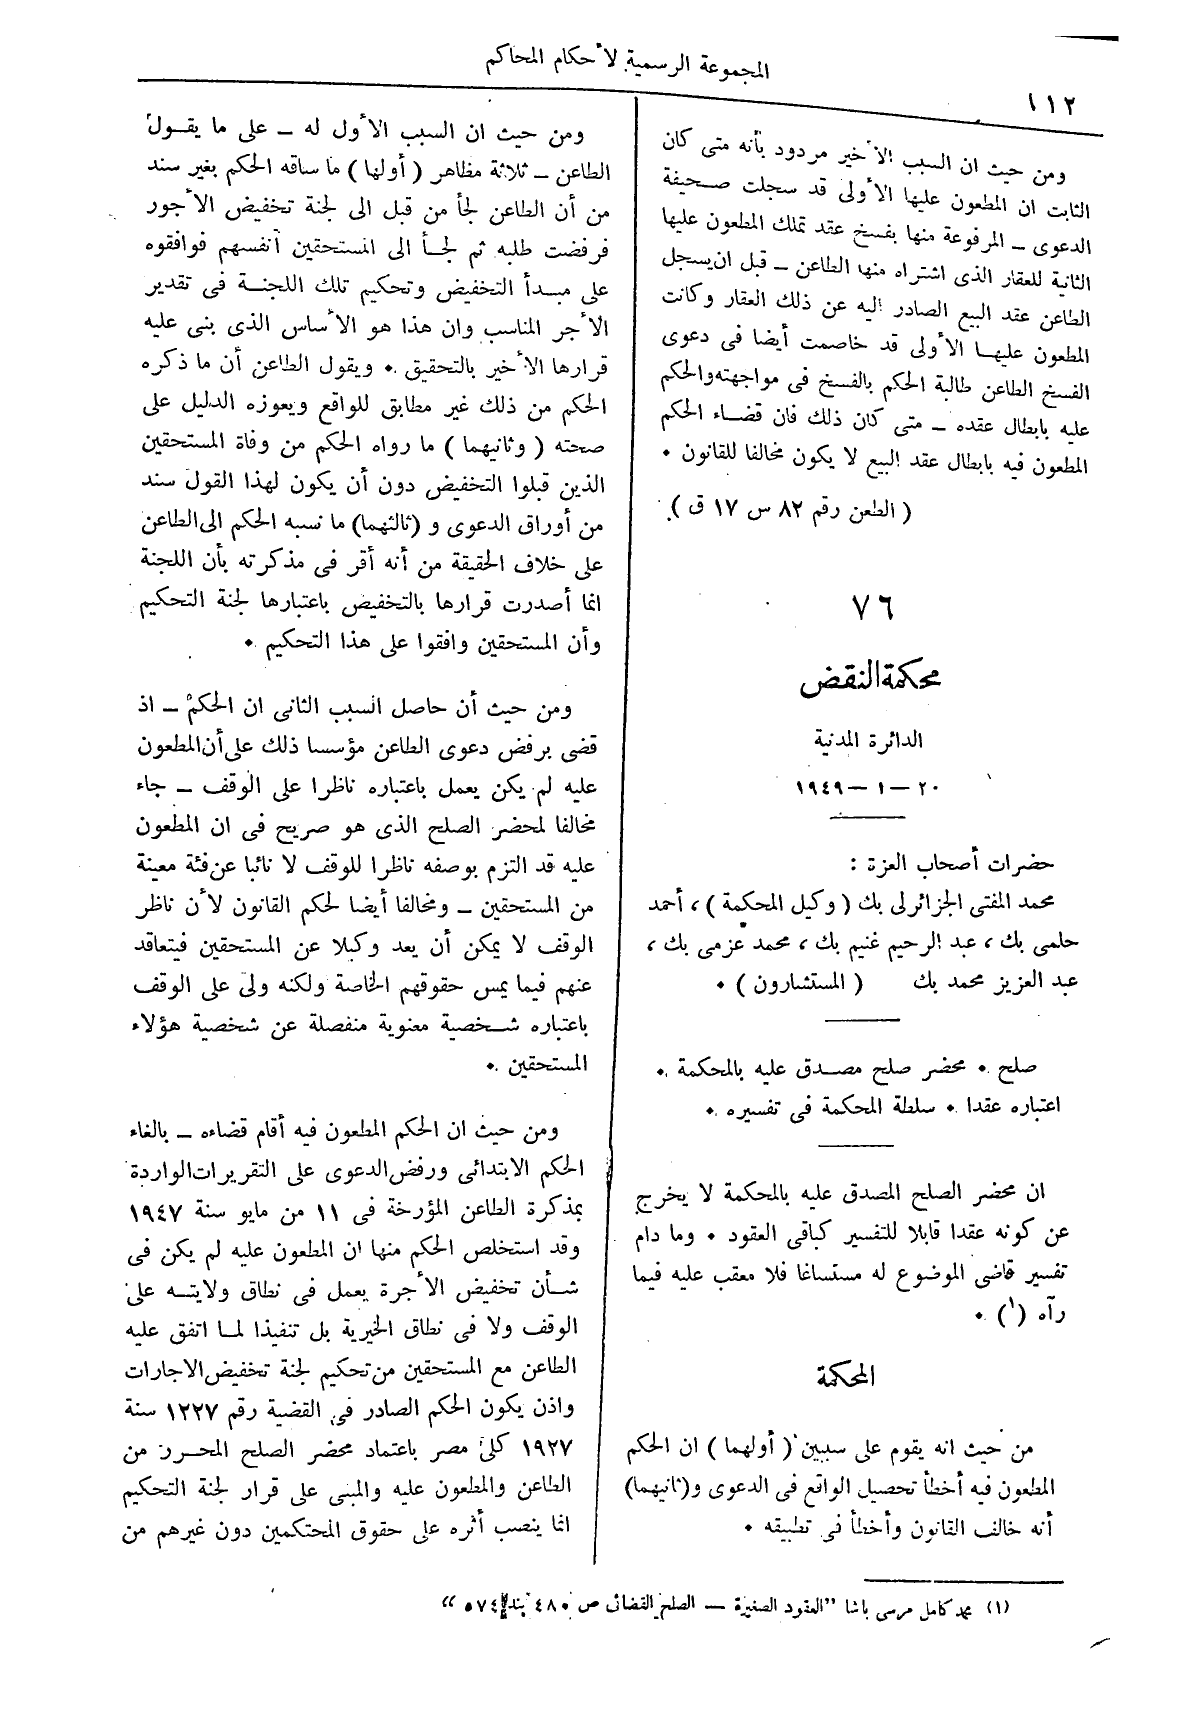 المجموعة الرسمية لأحكام المحاكم
١١٢
ومن حيث ان السبب الأخير مردود بأنه متى كان
الثابت ان المطعون عليها الأولى قد سجلت صحيفة
الدعوى – المرفوعة منها بفسخ عقد تملك المطعون عليها
الثانية للعقار الذى اشتراه منها الطاعن – قبل ان يسجل
الطاعن عقد البيع الصادر اليه عن ذلك العقار وكانت
المطعون عليها الأولى قد خاصمت أيضا فى دعوى
الفسخ الطاعن طالبة الحكم بالفسخ فى مواجهته والحكم
عليه بابطال عقده – متى كان ذلك فان قضاء الحكم
المطعون فيه بابطال عقد البيع لا يكون مخالفا للقانون ٠
( الطعن رقم ٨٢ س ١٧ ق ).
٧٦
محكمة النقض
الدائرة المدنية
٢٠ – ١ – ١٩٤٩
حضرات أصحاب العزة :
محمد المفتى الجزائرلى بك ( وكيل المحكمة ) ، أحمد
حلمى بك ، عبد الرحيم غنيم بك ، محمد عزمى بك ،
عبد العزيز محمد بك ( المستشارون ) ٠
صلح ٠ محضر صلح مصدق عليه بالمحكمة ٠
اعتباره عقدا ٠ سلطة المحكمة فى تفسيره ٠
ان محضر الصلح المصدق عليه بالمحكمة لا يخرج
عن كونه عقدا قابلا للتفسير كباقى العقود ٠ وما دام
تفسير قاضى الموضوع له مستساغا فلا معقب عليه فيما
رآه (١) ٠
المحكمة
من حيث انه يقوم على سببين ( أولهما ) ان الحكم
المطعون فيه أخطأ تحصيل الواقع فى الدعوى و(ثانيهما)
أنه خالف القانون وأخطأ فى تطبيقه ٠
ومن حيث ان السبب الأول له – على ما يقول
الطاعن – ثلاثة مظاهر ( أولها ) ما ساقه الحكم بغير سند
من أن الطاعن لجأ من قبل الى لجنة تخفيض الأجور
فرفضت طلبه ثم لجأ الى المستحقين أنفسهم فوافقوه
على مبدأ التخفيض وتحكيم تلك اللجنة فى تقدير
الأجر المناسب وان هذا هو الأساس الذى بنى عليه
قرارها الأخير بالتحقيق ٠ ويقول الطاعن أن ما ذكره
الحكم من ذلك غير مطابق للواقع ويعوزه الدليل على
صحته ( وثانيهما ) ما رواه الحكم من وفاة المستحقين
الذين قبلوا التخفيض دون أن يكون لهذا القول سند
من أوراق الدعوى و (ثالثهما) ما نسبه الحكم الى الطاعن
على خلاف الحقيقة من أنه أقر فى مذكرته بأن اللجنة
انما أصدرت قرارها بالتخفيض باعتبارها لجنة التحكيم
وأن المستحقين وافقوا على هذا التحكيم ٠
ومن حيث أن حاصل السبب الثانى ان الحكم – اذ
قضى برفض دعوى الطاعن مؤسسا ذلك على أن المطعون
عليه لم يكن يعمل باعتباره ناظرا على الوقف – جاء
مخالفا لمحضر الصلح الذى هو صريح فى ان المطعون
عليه قد التزم بوصفه ناظرا للوقف لا نائبا عن فئة معينة
من المستحقين – ومخالفا أيضا لحكم القانون لأن ناظر
الوقف لا يمكن أن يعد وكيلا عن المستحقين فيتعاقد
عنهم فيما يمس حقوقهم الخاصة ولكنه ولى على الوقف
باعتباره شخصية معنوية منفصلة عن شخصية هؤلاء
المستحقين ٠
ومن حيث ان الحكم المطعون فيه أقام قضاءه – بالغاء
الحكم الابتدائى ورفض الدعوى على التقريرات الواردة
بمذكرة الطاعن المؤرخة فى ١١ من مايو سنة ١٩٤٧
وقد استخلص الحكم منها ان المطعون عليه لم يكن فى
شأن تخفيض الأجرة يعمل فى نطاق ولايته على
الوقف ولا فى نطاق الخيرية بل تنفيذا لما اتفق عليه
الطاعن مع المستحقين من تحكيم لجنة تخفيض الاجارات
واذن يكون الحكم الصادر فى القضية رقم ١٢٢٧ سنة
١٩٢٧ كلى مصر باعتماد محضر الصلح المحرر من
الطاعن والمطعون عليه والمبنى على قرار لجنة التحكيم
انما ينصب أثره على حقوق المحتكمين دون غيرهم من
(١) محمد كامل مرسى باشا "العقود الصغيرة – الصلح القضائى ص ٤٨٠ بند ٥٧٤"